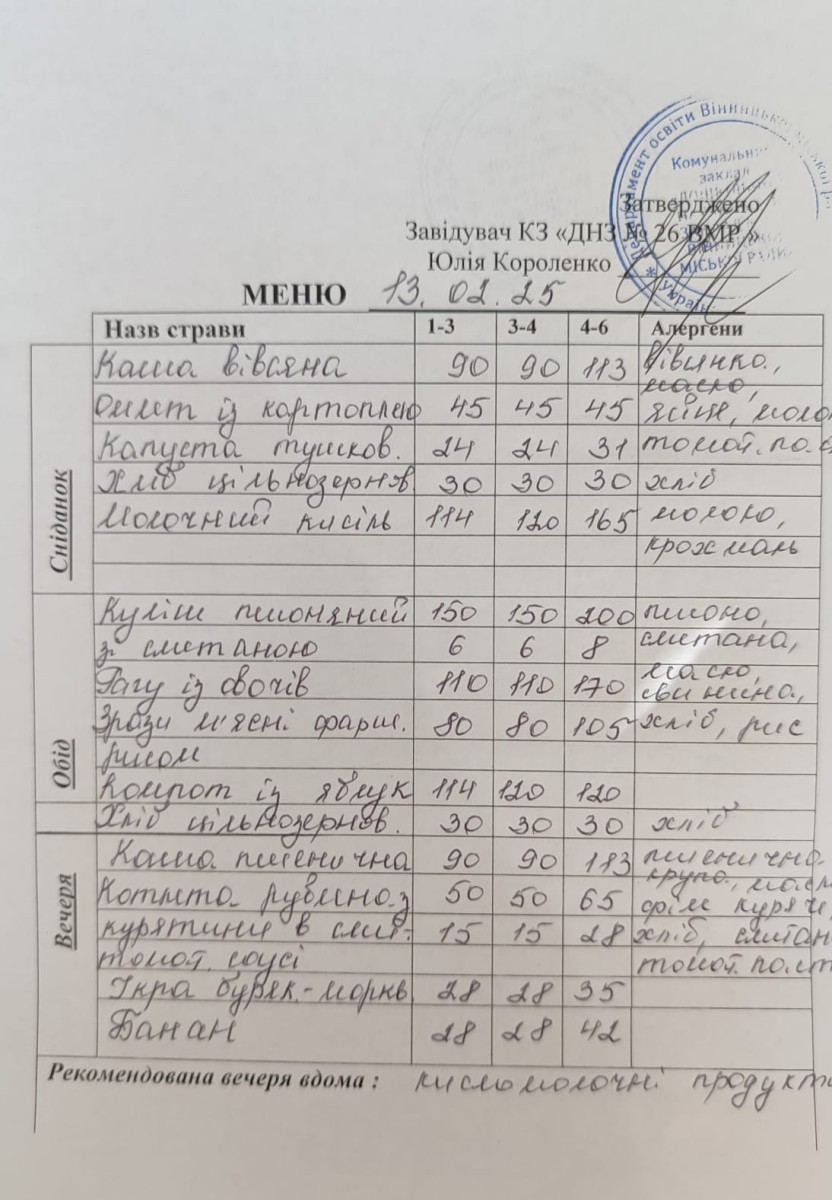 Департамент освіти Вінницької міської ради
Комунальний
заклад
МІСЬКОЇ РАДИ
* Україна
Затверджено
Завідувач КЗ «ДНЗ № 26 ВМР »
Юлія Короленко
МЕНЮ 13.02.25
Назв страви 1-3 3-4 4-6 Алергени
Сніданок
Каша вівсяна 90 90 113 вівсянка,
масло,
Омлет із картоплею 45 45 45 яйце, моло
Капуста тушков. 24 24 31 томат. па.с
Хліб цільнозернов 30 30 30 хліб
Молочний кисіль 114 120 165 молоко,
крохмаль
Обід
Куліш пшоняний 150 150 200 пшоно,
зі сметаною 6 6 8 сметана,
масло,
Рагу із овочів 110 110 170 свинина,
Зрази м'ясні фарш. 80 80 105 хліб, рис
рисом
Компот із яблук 114 120 120
Хліб цільнозернов. 30 30 30 хліб
Вечеря
Каша пшенична 90 90 113 пшенична
крупа, масл
Котлета рублена з 50 50 65 філе куряче
курятини в смет- 15 15 28 хліб, сметан
томат. соусі томат. паст
Ікра буряк.-моркв 28 28 35
Банан 28 28 42
Рекомендована вечеря вдома : кисломолочні продукти